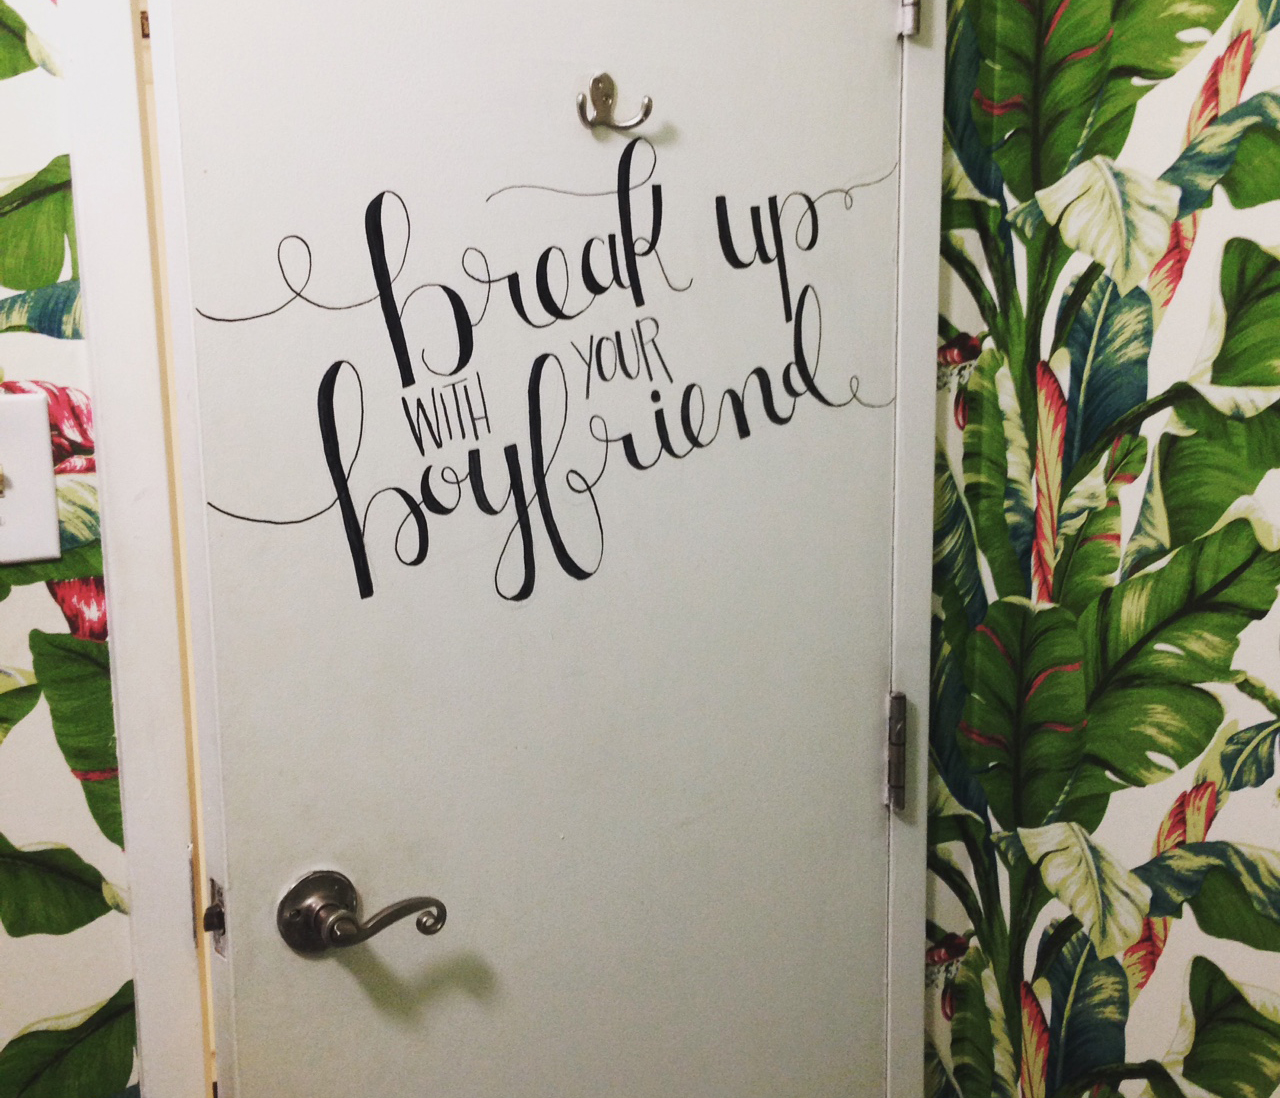 break up
WITH YOUR
boyfriend